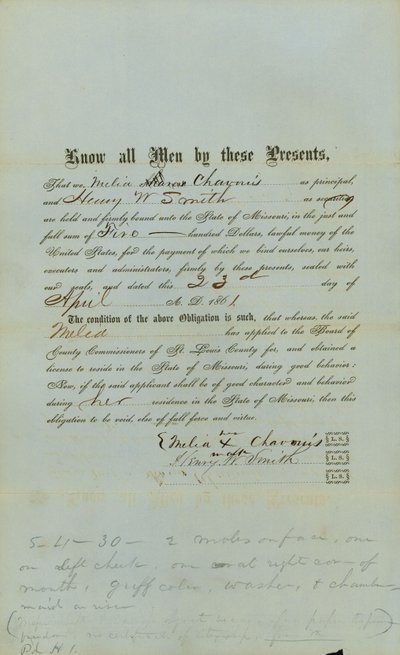 Know all Men by these Presents,
That we, Melia Chavous as principal,
and Henry W Smith as security
are held and firmly bound unto the State of Missouri, in the just and
full sum of Five hundred Dollars, lawful money of the
United States, for the payment of which we bind ourselves, our heirs,
executors and administrators, firmly by these presents, sealed with
our seals, and dated this 23d day of
April A. D. 1861.
The condition of the above Obligation is such, that whereas, the said
Melia has applied to the Board of
County Commissioners of St. Louis County for, and obtained a
license to reside in the State of Missouri, during good behavior:
Now, if the said applicant shall be of good character and behavior
during her residence in the State of Missouri, then this
obligation to be void, else of full force and virtue.
her
Emelia X Chavous L. S.
mark
Henry W. Smith L. S.
L. S.
5-4-30- 2 moles on face, one
on left cheek, one near right cor- of
mouth, griff color, washer, & chamber
maid
Pd H 1.